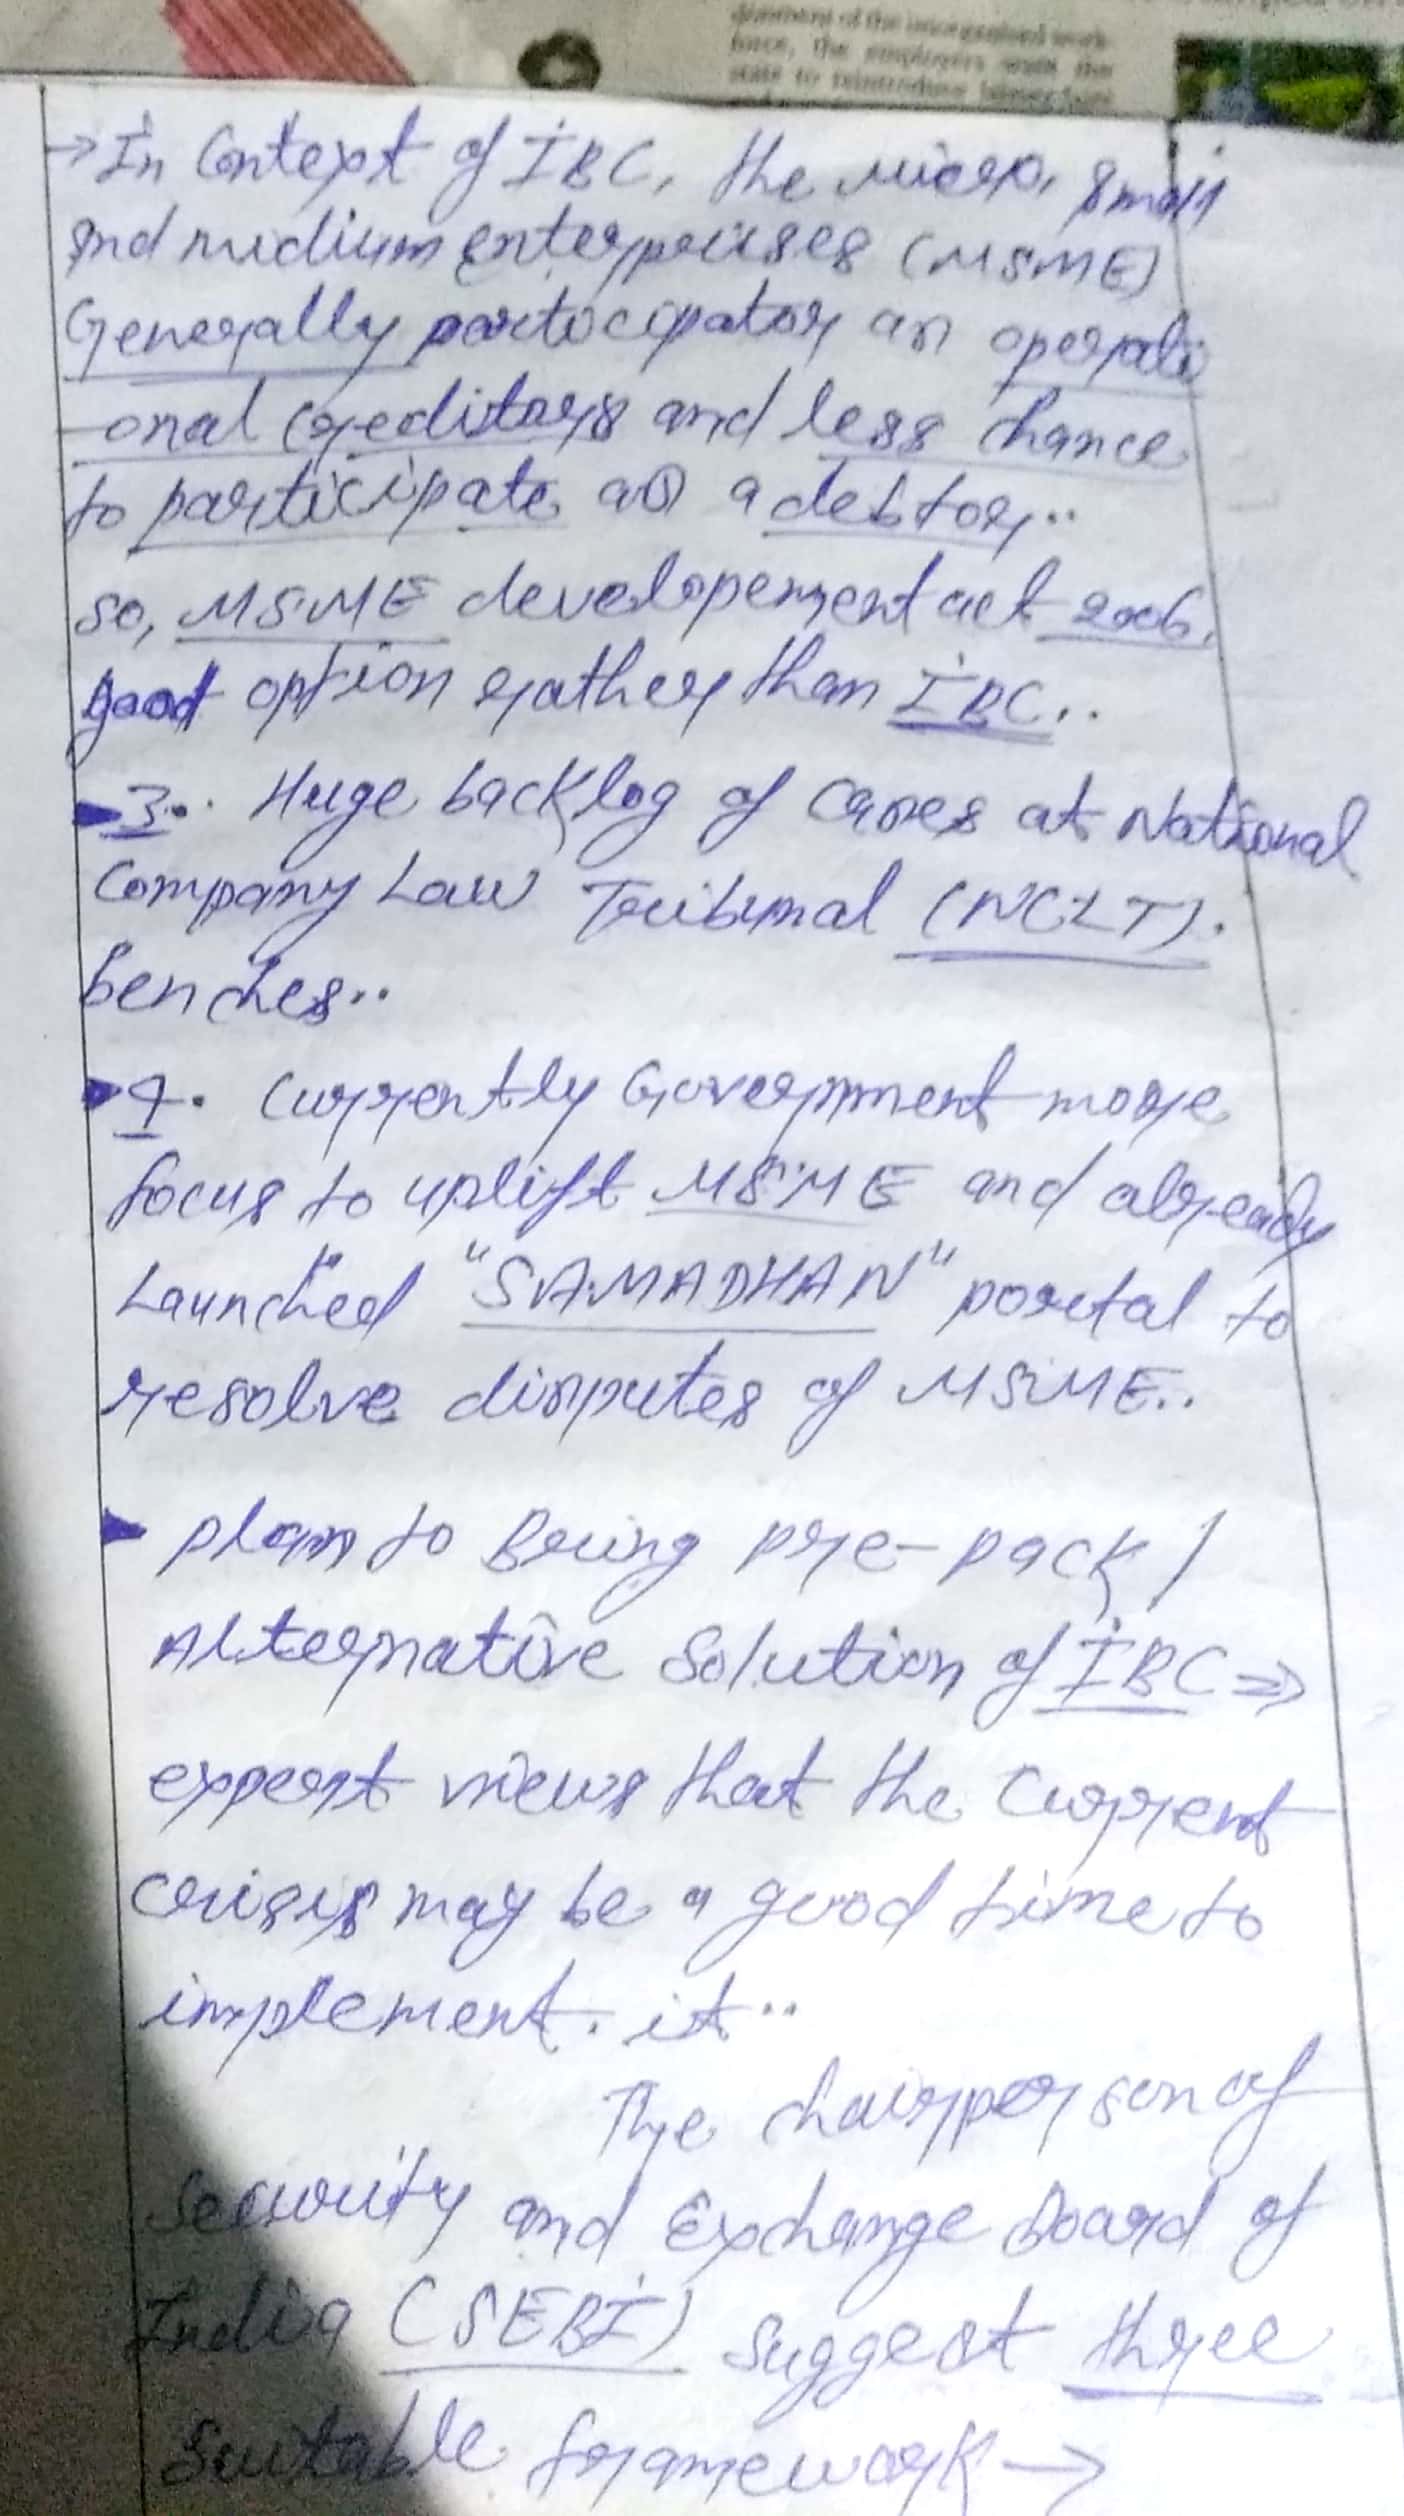 dominance of the unorganised work
force, the employers want the
state to reintroduce
→ In Context of IBC, the micro, small
and midium enterprises (MSME)
Generally participator as operati
-onal creditors and less chance
to participate as a debtor..
so, MSME developement act 2006,
good option rather than IBC..
3.. Huge backlog of cases at National
Company Law Tribunal (NCLT).
benches..
4. Currently Government more
focus to uplift MSME and already
Launched "SAMADHAN" portal to
resolve disputes of MSME..
plan to Bring pre-pack /
Alternative Solution of IBC ⇒
expert views that the Current
crisis may be a good time to
implement. it..
The chairperson of
Security and Exchange Board of
India (SEBI) suggest three
Suitable framework →